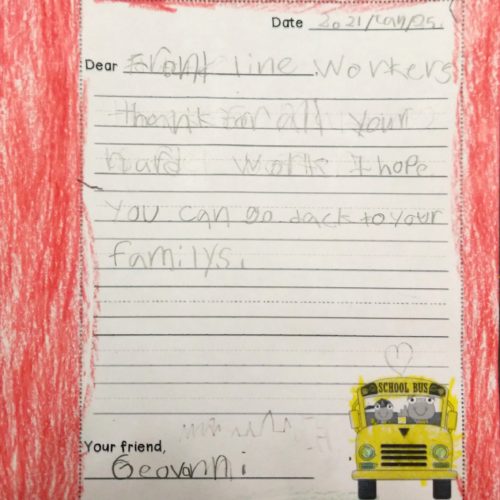 Date 2021/Jan/25.
Dear Front line Workers
thank for all your
hard work I hope
you can go dack to your
familys.
SCHOOL BUS
Your friend,
Geovanni